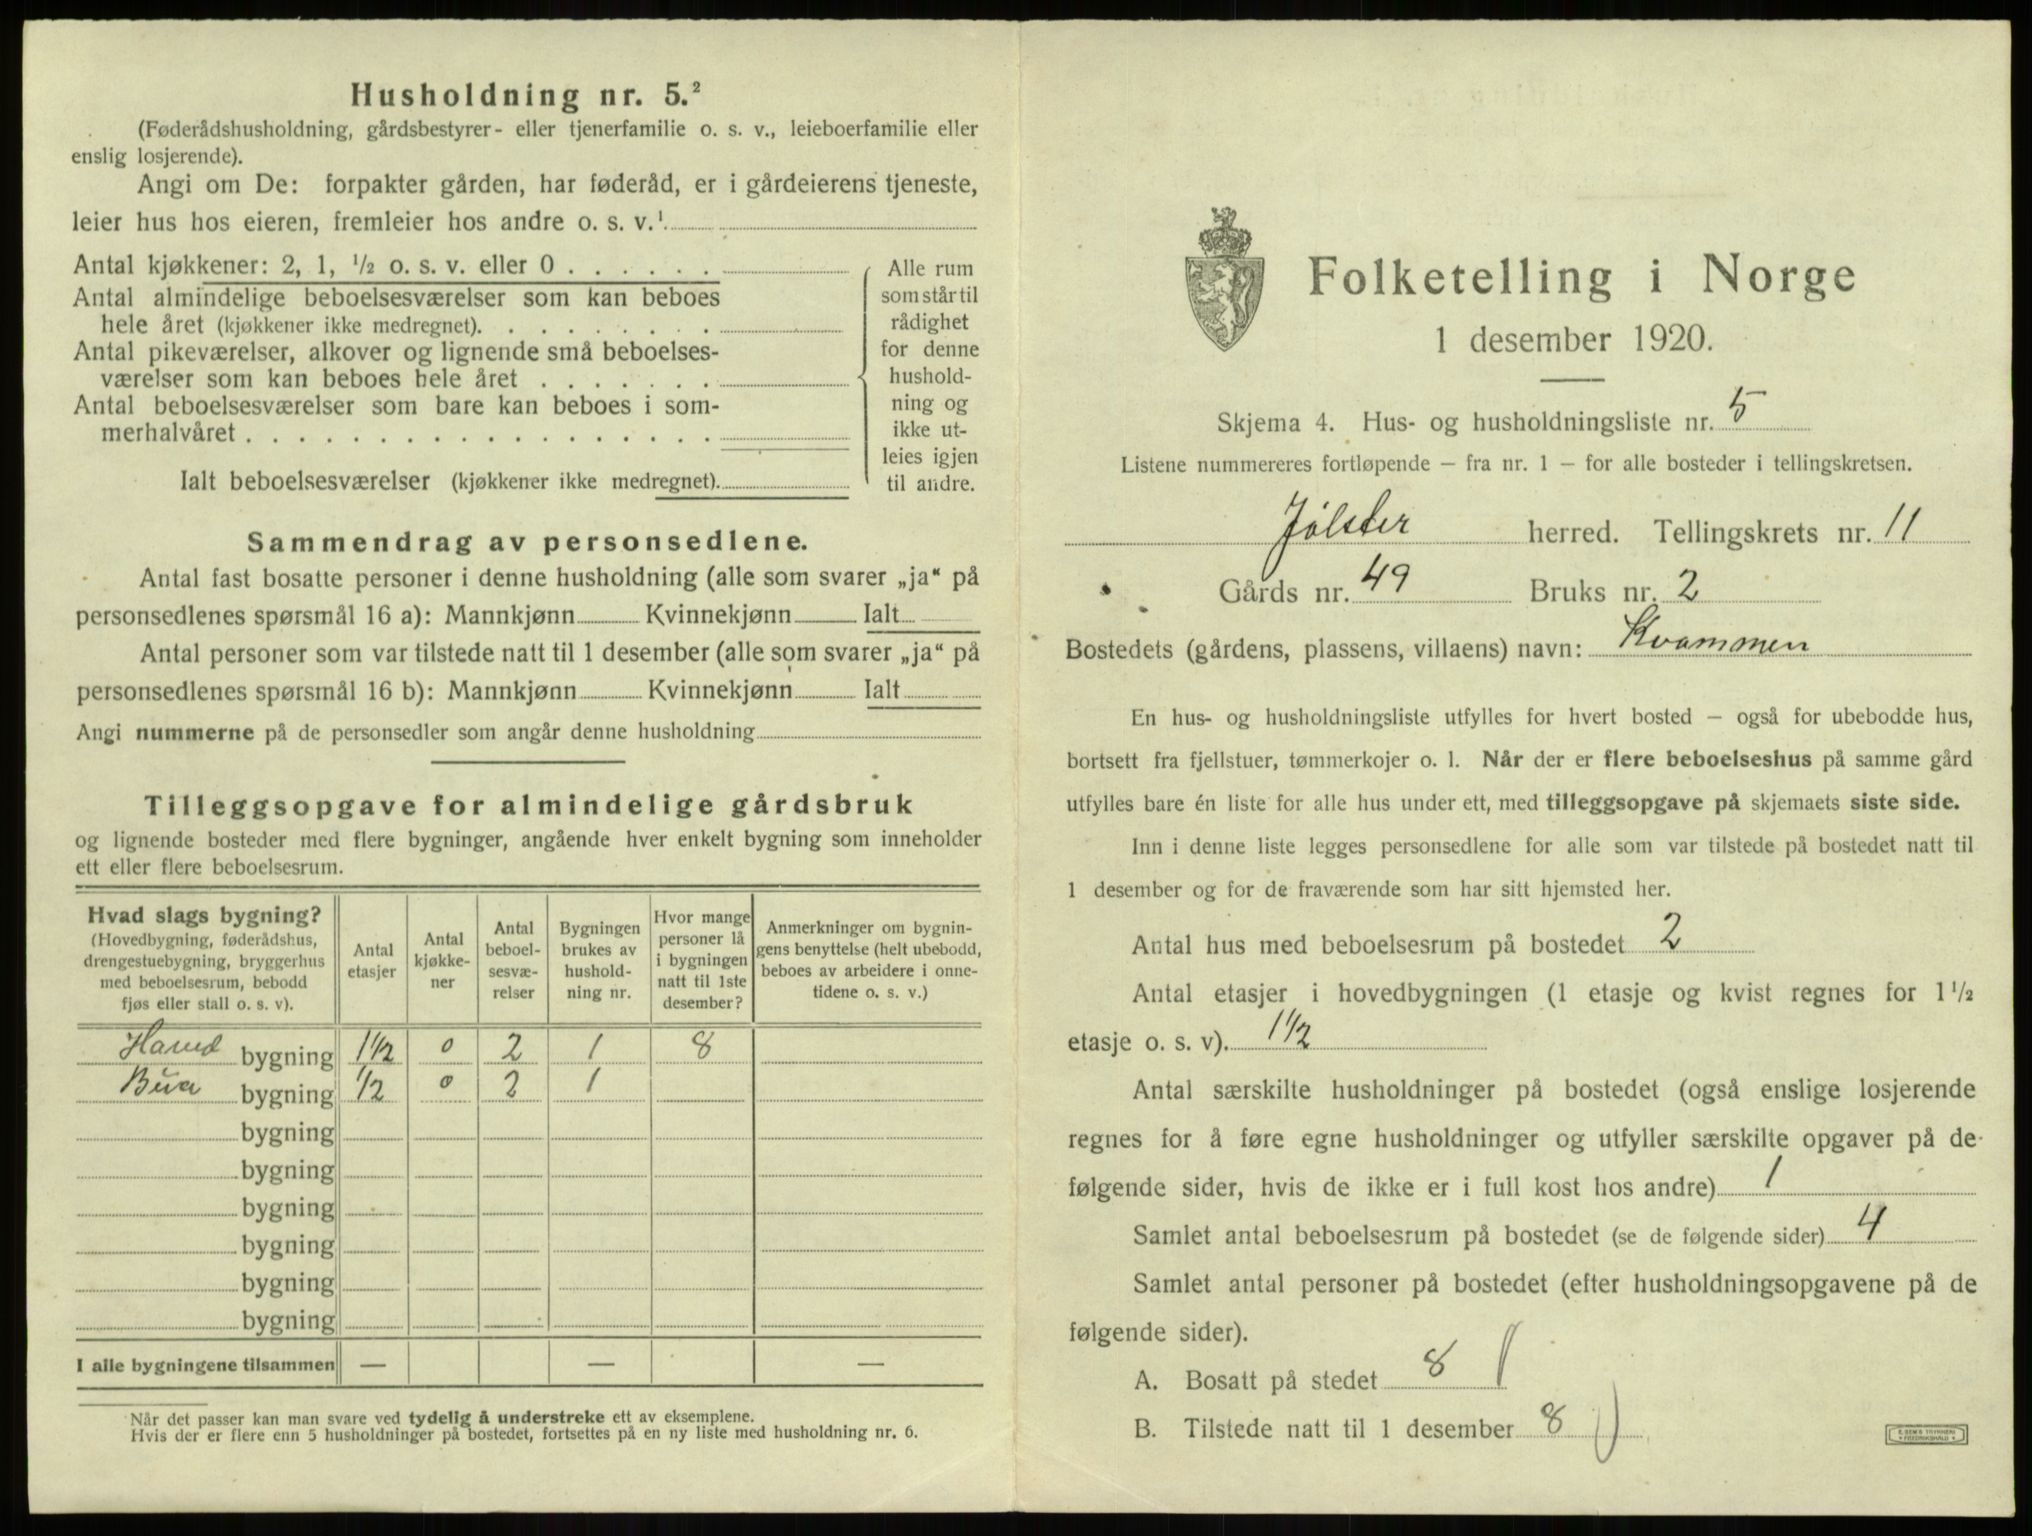 Husholdning nr. 5.²
(Føderådshusholdning, gårdsbestyrer- eller tjenerfamilie o. s. v., leieboerfamilie eller
enslig losjerende).
Angi om De: forpakter gården, har føderåd, er i gårdeierens tjeneste,
leier hus hos eieren, fremleier hos andre o. s. v.¹
Antal kjøkkener: 2, 1, ½ o. s. v. eller 0 . . . . . .
Antal almindelige beboelsesværelser som kan beboes
hele året (kjøkkener ikke medregnet). . . . . . . . .
Antal pikeværelser, alkover og lignende små beboelses-
værelser som kan beboes hele året . . . . . . .
Antal beboelsesværelser som bare kan beboes i som-
merhalvåret . . . . . . . . . . . . . . . . . .
Ialt beboelsesværelser (kjøkkener ikke medregnet).
Alle rum
som står til
rådighet
for denne
hushold-
ning og
ikke ut-
leies igjen
til andre.
Sammendrag av personsedlene.
Antal fast bosatte personer i denne husholdning (alle som svarer „ja“ på
personsedlenes spørsmål 16 a): Mannkjønn Kvinnekjønn Ialt
Antal personer som var tilstede natt til 1 desember (alle som svarer „ja“ på
personsedlenes spørsmål 16 b): Mannkjønn Kvinnekjønn Ialt
Angi nummerne på de personsedler som angår denne husholdning
Tilleggsopgave for almindelige gårdsbruk
og lignende bosteder med flere bygninger, angående hver enkelt bygning som inneholder
ett eller flere beboelsesrum.
Hvad slags bygning?
(Hovedbygning, føderådshus,
drengestuebygning, bryggerhus
med beboelsesrum, bebodd
fjøs eller stall o. s. v).
Antal
etasjer
Antal
kjøkke-
ner
Antal
beboel-
sesvæ-
relser
Bygningen
brukes av
hushold-
ning nr.
Hvor mange
personer lå
i bygningen
natt til 1ste
desember?
Anmerkninger om bygnin-
gens benyttelse (helt ubebodd,
beboes av arbeidere i onne-
tidene o. s. v.)
bygning 1½ 0 2 1 8
Bua bygning ½ 0 2 1
bygning
bygning
bygning
bygning
bygning
bygning
I alle bygningene tilsammen — — —
Når det passer kan man svare ved tydelig å understreke ett av eksemplene.
Hvis der er flere enn 5 husholdninger på bostedet, fortsettes på en ny liste med husholdning nr. 6.
Folketelling i Norge
1 desember 1920.
Skjema 4. Hus- og husholdningsliste nr. 5
Listene nummereres fortløpende – fra nr. 1 – for alle bosteder i tellingskretsen.
Jølster herred. Tellingskrets nr. 11
Gårds nr. 49 Bruks nr. 2
Bostedets (gårdens, plassens, villaens) navn: Kvammen
En hus- og husholdningsliste utfylles for hvert bosted – også for ubebodde hus,
bortsett fra fjellstuer, tømmerkojer o. l. Når der er flere beboelseshus på samme gård
utfylles bare én liste for alle hus under ett, med tilleggsopgave på skjemaets siste side.
Inn i denne liste legges personsedlene for alle som var tilstede på bostedet natt til
1 desember og for de fraværende som har sitt hjemsted her.
Antal hus med beboelsesrum på bostedet 2
Antal etasjer i hovedbygningen (1 etasje og kvist regnes for 1½
etasje o. s. v). 1½
Antal særskilte husholdninger på bostedet (også enslige losjerende
regnes for å føre egne husholdninger og utfyller særskilte opgaver på de
følgende sider, hvis de ikke er i full kost hos andre) 1
Samlet antal beboelsesrum på bostedet (se de følgende sider) 4
Samlet antal personer på bostedet (efter husholdningsopgavene på de
følgende sider).
A. Bosatt på stedet 8
B. Tilstede natt til 1 desember 8